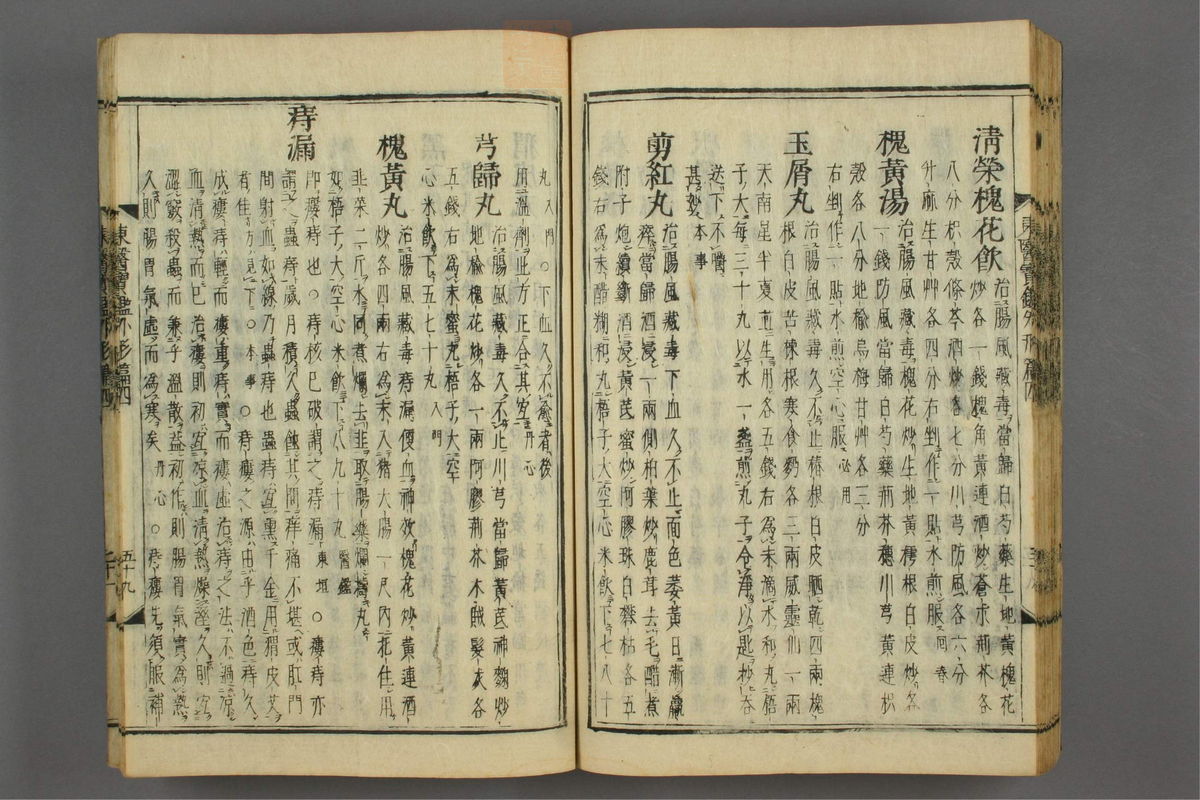 清榮槐花飲 治腸風藏毒當歸白芍藥生地黃槐花
八分枳殼條芩酒炒各七分川芎防風各六分
炒各一錢槐角黃連酒炒蒼朮荊芥各
升麻生甘艸各四分右剉作一貼水煎服回春
槐黃湯 治腸風藏毒槐花炒生地黃樗根白皮炒各
一錢防風當歸白芍藥荊芥穗川芎黃連枳
殼各八分地榆烏梅甘艸各三分
右剉作一貼水煎空心服必用
玉屑丸 治腸風藏毒久不止椿根白皮晒乾四兩槐
根白皮苦楝根寒食麪各三兩威靈仙一兩
天南星半夏並生用各五錢右為末滴水和丸梧
子大每三十丸以水一盞煎丸子令淨以匙抄吞
送下不嚼
甚妙本事
剪紅丸 治腸風藏毒下血久不止面色萎黃日漸羸
瘠當歸酒浸一兩側柏葉炒鹿茸去毛醋煮
附子炮續斷酒浸黃芪蜜炒阿膠珠白礬枯各五
錢右為末醋糊和丸梧子大空心米飲下七八十
丸入門 ○下血久不愈者後
用溫劑止方正合其宜丹心
芎歸丸 治腸風藏毒久不止川芎當歸黃芪神麴炒
地榆槐花炒各一兩阿膠荊芥木賊髮灰各
五錢右為末蜜丸梧子大空
心米飲下五七十丸入門
槐黃丸 治腸風藏毒痔漏便血神效槐花炒黃連酒
炒各四兩右為末入猪大腸一尺內扎住用
韭菜二斤水同煮爛去韭取腸藥爛搗丸
如梧子大空心米飲下八九十丸醫鑑
痔漏 即瘻痔也○痔核已破謂之痔漏東垣 ○瘻痔亦
謂之蟲痔歲月積久蟲蝕其間痒痛不堪或肛門
間射血如線乃蟲痔也蟲痔宜熏千金用猬皮艾
者佳方見下○本事 ○痔瘻之源由乎酒色痔久
成瘻痔輕而瘻重痔實而瘻虛治痔之法不過涼
血清熱而已治瘻則初宜涼血清熱燥濕久則宜
澀竅殺蟲而兼乎溫散蓋初作則腸胃氣實為熱
久則腸胃氣虛而為寒矣丹心 ○痔瘻先須服補
東醫寶鑑外形篇四
五十九